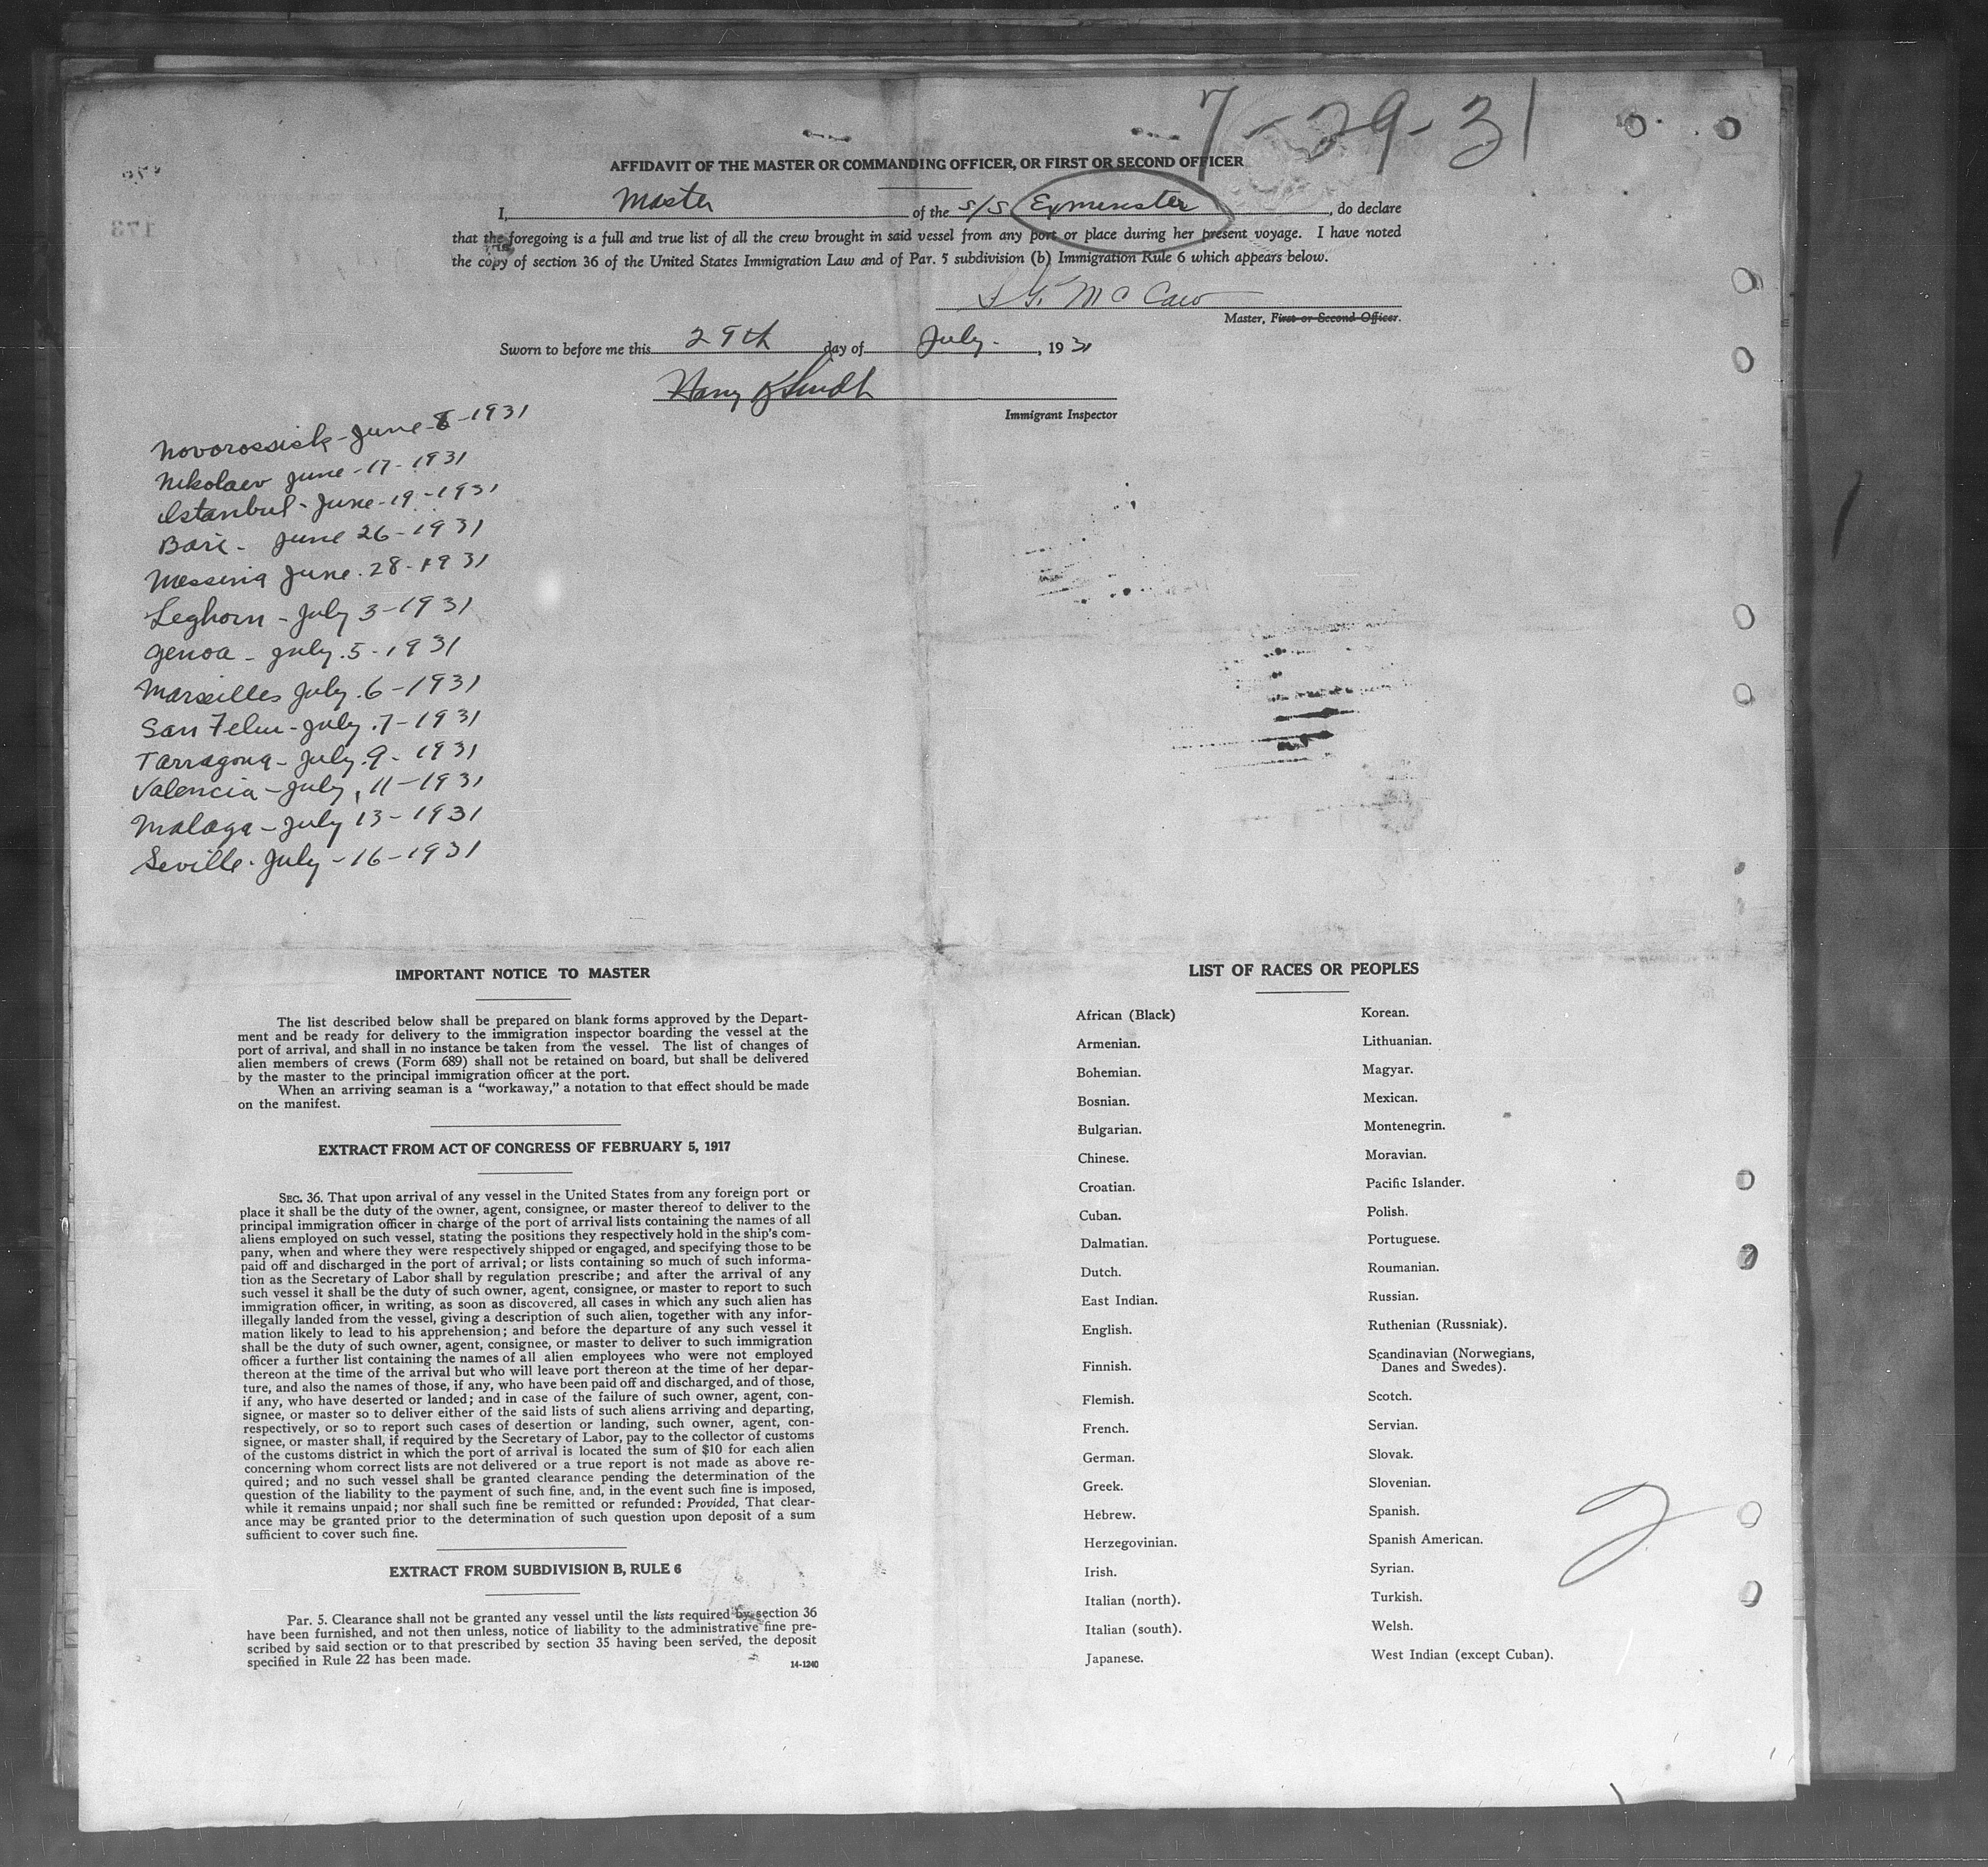 7-29-31
AFFIDAVIT OF THE MASTER OR COMMANDING OFFICER, OR FIRST OR SECOND OFFICER
I, Master of the S/S Exminster, do declare
that the foregoing is a full and true list of all the crew brought in said vessel from any port or place during her present voyage. I have noted
the copy of section 36 of the United States Immigration Law and of Par. 5 subdivision (b) Immigration Rule 6 which appears below.
McCaw
Master, First or Second Officer.
Sworn to before me this 29th day of July, 1931
Harry
Immigrant Inspector
Novorossisk - June - 8 - 1931
Nikolaev June - 17 - 1931
Istanbul - June - 19 - 1931
Bari - June 26 - 1931
Messina June . 28 - 1931
Leghorn - July 3 - 1931
Genoa - July . 5 - 1931
Marseilles July . 6 - 1931
San Feliu - July . 7 - 1931
Tarragona - July . 9 - 1931
Valencia - July , 11 - 1931
Malaga - July 13 - 1931
Seville - July - 16 - 1931
IMPORTANT NOTICE TO MASTER
The list described below shall be prepared on blank forms approved by the Depart-
ment and be ready for delivery to the immigration inspector boarding the vessel at the
port of arrival, and shall in no instance be taken from the vessel. The list of changes of
alien members of crews (Form 689) shall not be retained on board, but shall be delivered
by the master to the principal immigration officer at the port.
When an arriving seaman is a “workaway,” a notation to that effect should be made
on the manifest.
EXTRACT FROM ACT OF CONGRESS OF FEBRUARY 5, 1917
SEC. 36. That upon arrival of any vessel in the United States from any foreign port or
place it shall be the duty of the owner, agent, consignee, or master thereof to deliver to the
principal immigration officer in charge of the port of arrival lists containing the names of all
aliens employed on such vessel, stating the positions they respectively hold in the ship's com-
pany, when and where they were respectively shipped or engaged, and specifying those to be
paid off and discharged in the port of arrival; or lists containing so much of such informa-
tion as the Secretary of Labor shall by regulation prescribe; and after the arrival of any
such vessel it shall be the duty of such owner, agent, consignee, or master to report to such
immigration officer, in writing, as soon as discovered, all cases in which any such alien has
illegally landed from the vessel, giving a description of such alien, together with any infor-
mation likely to lead to his apprehension; and before the departure of any such vessel it
shall be the duty of such owner, agent, consignee, or master to deliver to such immigration
officer a further list containing the names of all alien employees who were not employed
thereon at the time of the arrival but who will leave port thereon at the time of her depar-
ture, and also the names of those, if any, who have been paid off and discharged, and of those,
if any, who have deserted or landed; and in case of the failure of such owner, agent, con-
signee, or master so to deliver either of the said lists of such aliens arriving and departing,
respectively, or so to report such cases of desertion or landing, such owner, agent, con-
signee, or master shall, if required by the Secretary of Labor, pay to the collector of customs
of the customs district in which the port of arrival is located the sum of $10 for each alien
concerning whom correct lists are not delivered or a true report is not made as above re-
quired; and no such vessel shall be granted clearance pending the determination of the
question of the liability to the payment of such fine, and, in the event such fine is imposed,
while it remains unpaid; nor shall such fine be remitted or refunded: Provided, That clear-
ance may be granted prior to the determination of such question upon deposit of a sum
sufficient to cover such fine.
EXTRACT FROM SUBDIVISION B, RULE 6
Par. 5. Clearance shall not be granted any vessel until the lists required by section 36
have been furnished, and not then unless, notice of liability to the administrative fine pre-
scribed by said section or to that prescribed by section 35 having been served, the deposit
specified in Rule 22 has been made.
14-1240
LIST OF RACES OR PEOPLES
African (Black)
Armenian.
Bohemian.
Bosnian.
Bulgarian.
Chinese.
Croatian.
Cuban.
Dalmatian.
Dutch.
East Indian.
English.
Finnish.
Flemish.
French.
German.
Greek.
Hebrew.
Herzegovinian.
Irish.
Italian (north).
Italian (south).
Japanese.
Korean.
Lithuanian.
Magyar.
Mexican.
Montenegrin.
Moravian.
Pacific Islander.
Polish.
Portuguese.
Roumanian.
Russian.
Ruthenian (Russniak).
Scandinavian (Norwegians,
Danes and Swedes).
Scotch.
Servian.
Slovak.
Slovenian.
Spanish.
Spanish American.
Syrian.
Turkish.
Welsh.
West Indian (except Cuban).
2